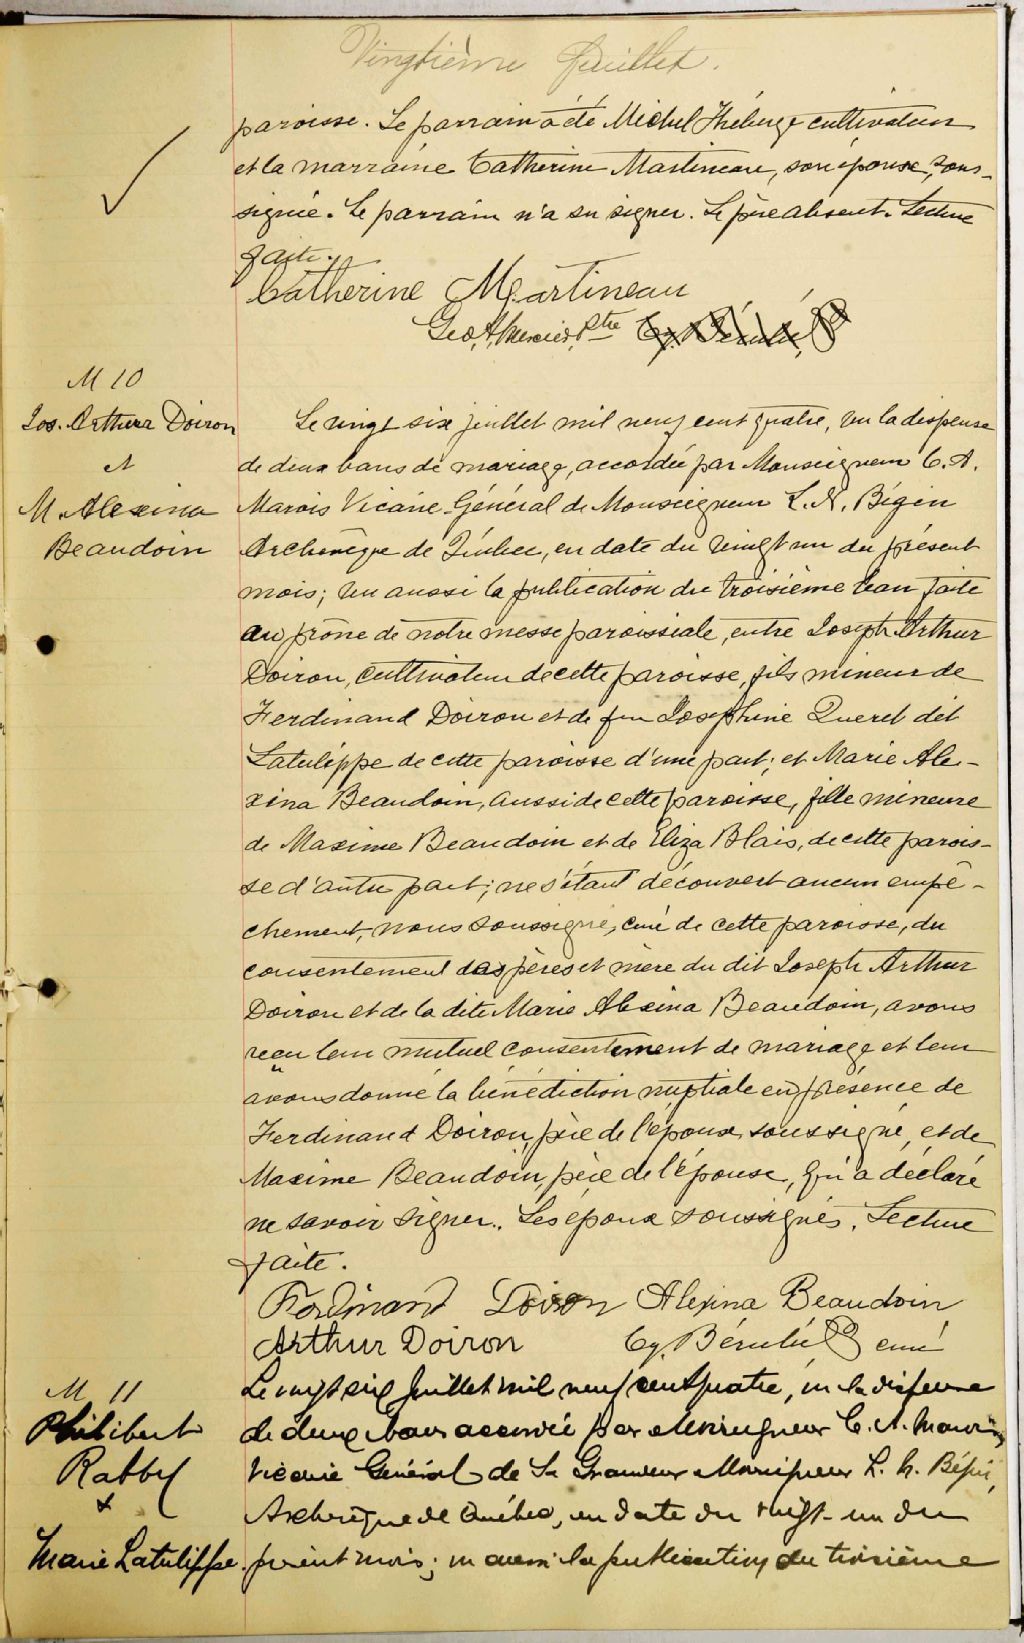 Vingtième feuillet.
paroisse. Le parrain a été Michel Théberge cultivateur
et la marraine Catherine Martineau, son épouse, sous-
signée. Le parrain n'a su signer. Le père absent. Lecture
faite.
Catherine Martineau
Geo. A. Mercier, Ptre Cy. Bérubé, P
M 10
Jos. Arthur Doiron
et
M. Alexina
Beaudoin
Le vingt six juillet mil neuf cent quatre, vu la dispense
de deux bans de mariage, accordée par Monseigneur C. A.
Marois Vicaire-Général de Monseigneur L. N. Bégin
Archevêque de Québec, en date du vingt un du présent
mois; vu aussi la publication du troisième ban faite
au prône de notre messe paroissiale, entre Joseph Arthur
Doiron, cultivateur de cette paroisse, fils mineur de
Ferdinand Doiron et de feu Josephine Queret dit
Latulippe de cette paroisse d'une part; et Marie Ale-
xina Beaudoin, aussi de cette paroisse, fille mineure
de Maxime Beaudoin et de Eliza Blais, de cette parois-
se d'autre part; ne s'étant découvert aucun empê-
chement, nous soussigné, curé de cette paroisse, du
consentement des pères et mère du dit Joseph Arthur
Doiron et de la dite Marie Alexina Beaudoin, avons
reçu leur mutuel consentement de mariage et leur
avons donné la bénédiction nuptiale en présence de
Ferdinand Doiron, père de l'époux soussigné, et de
Maxime Beaudoin, père de l'épouse, qui a déclaré
ne savoir signer. Les époux soussignés. Lecture
faite.
Ferdinand Doiron Alexina Beaudoin
Arthur Doiron Cy. Bérubé P curé
M 11
Philibert
Rabby
&
Marie Latulippe
Le vingt six juillet mil neuf cent quatre, vu la dispense
de deux bans accordée par Monseigneur C. A. Marois
Vicaire Général de Sa Grandeur Monseigneur L. N. Bégin,
Archevêque de Québec, en date du vingt-un du
présent mois; vu aussi la publication du troisième